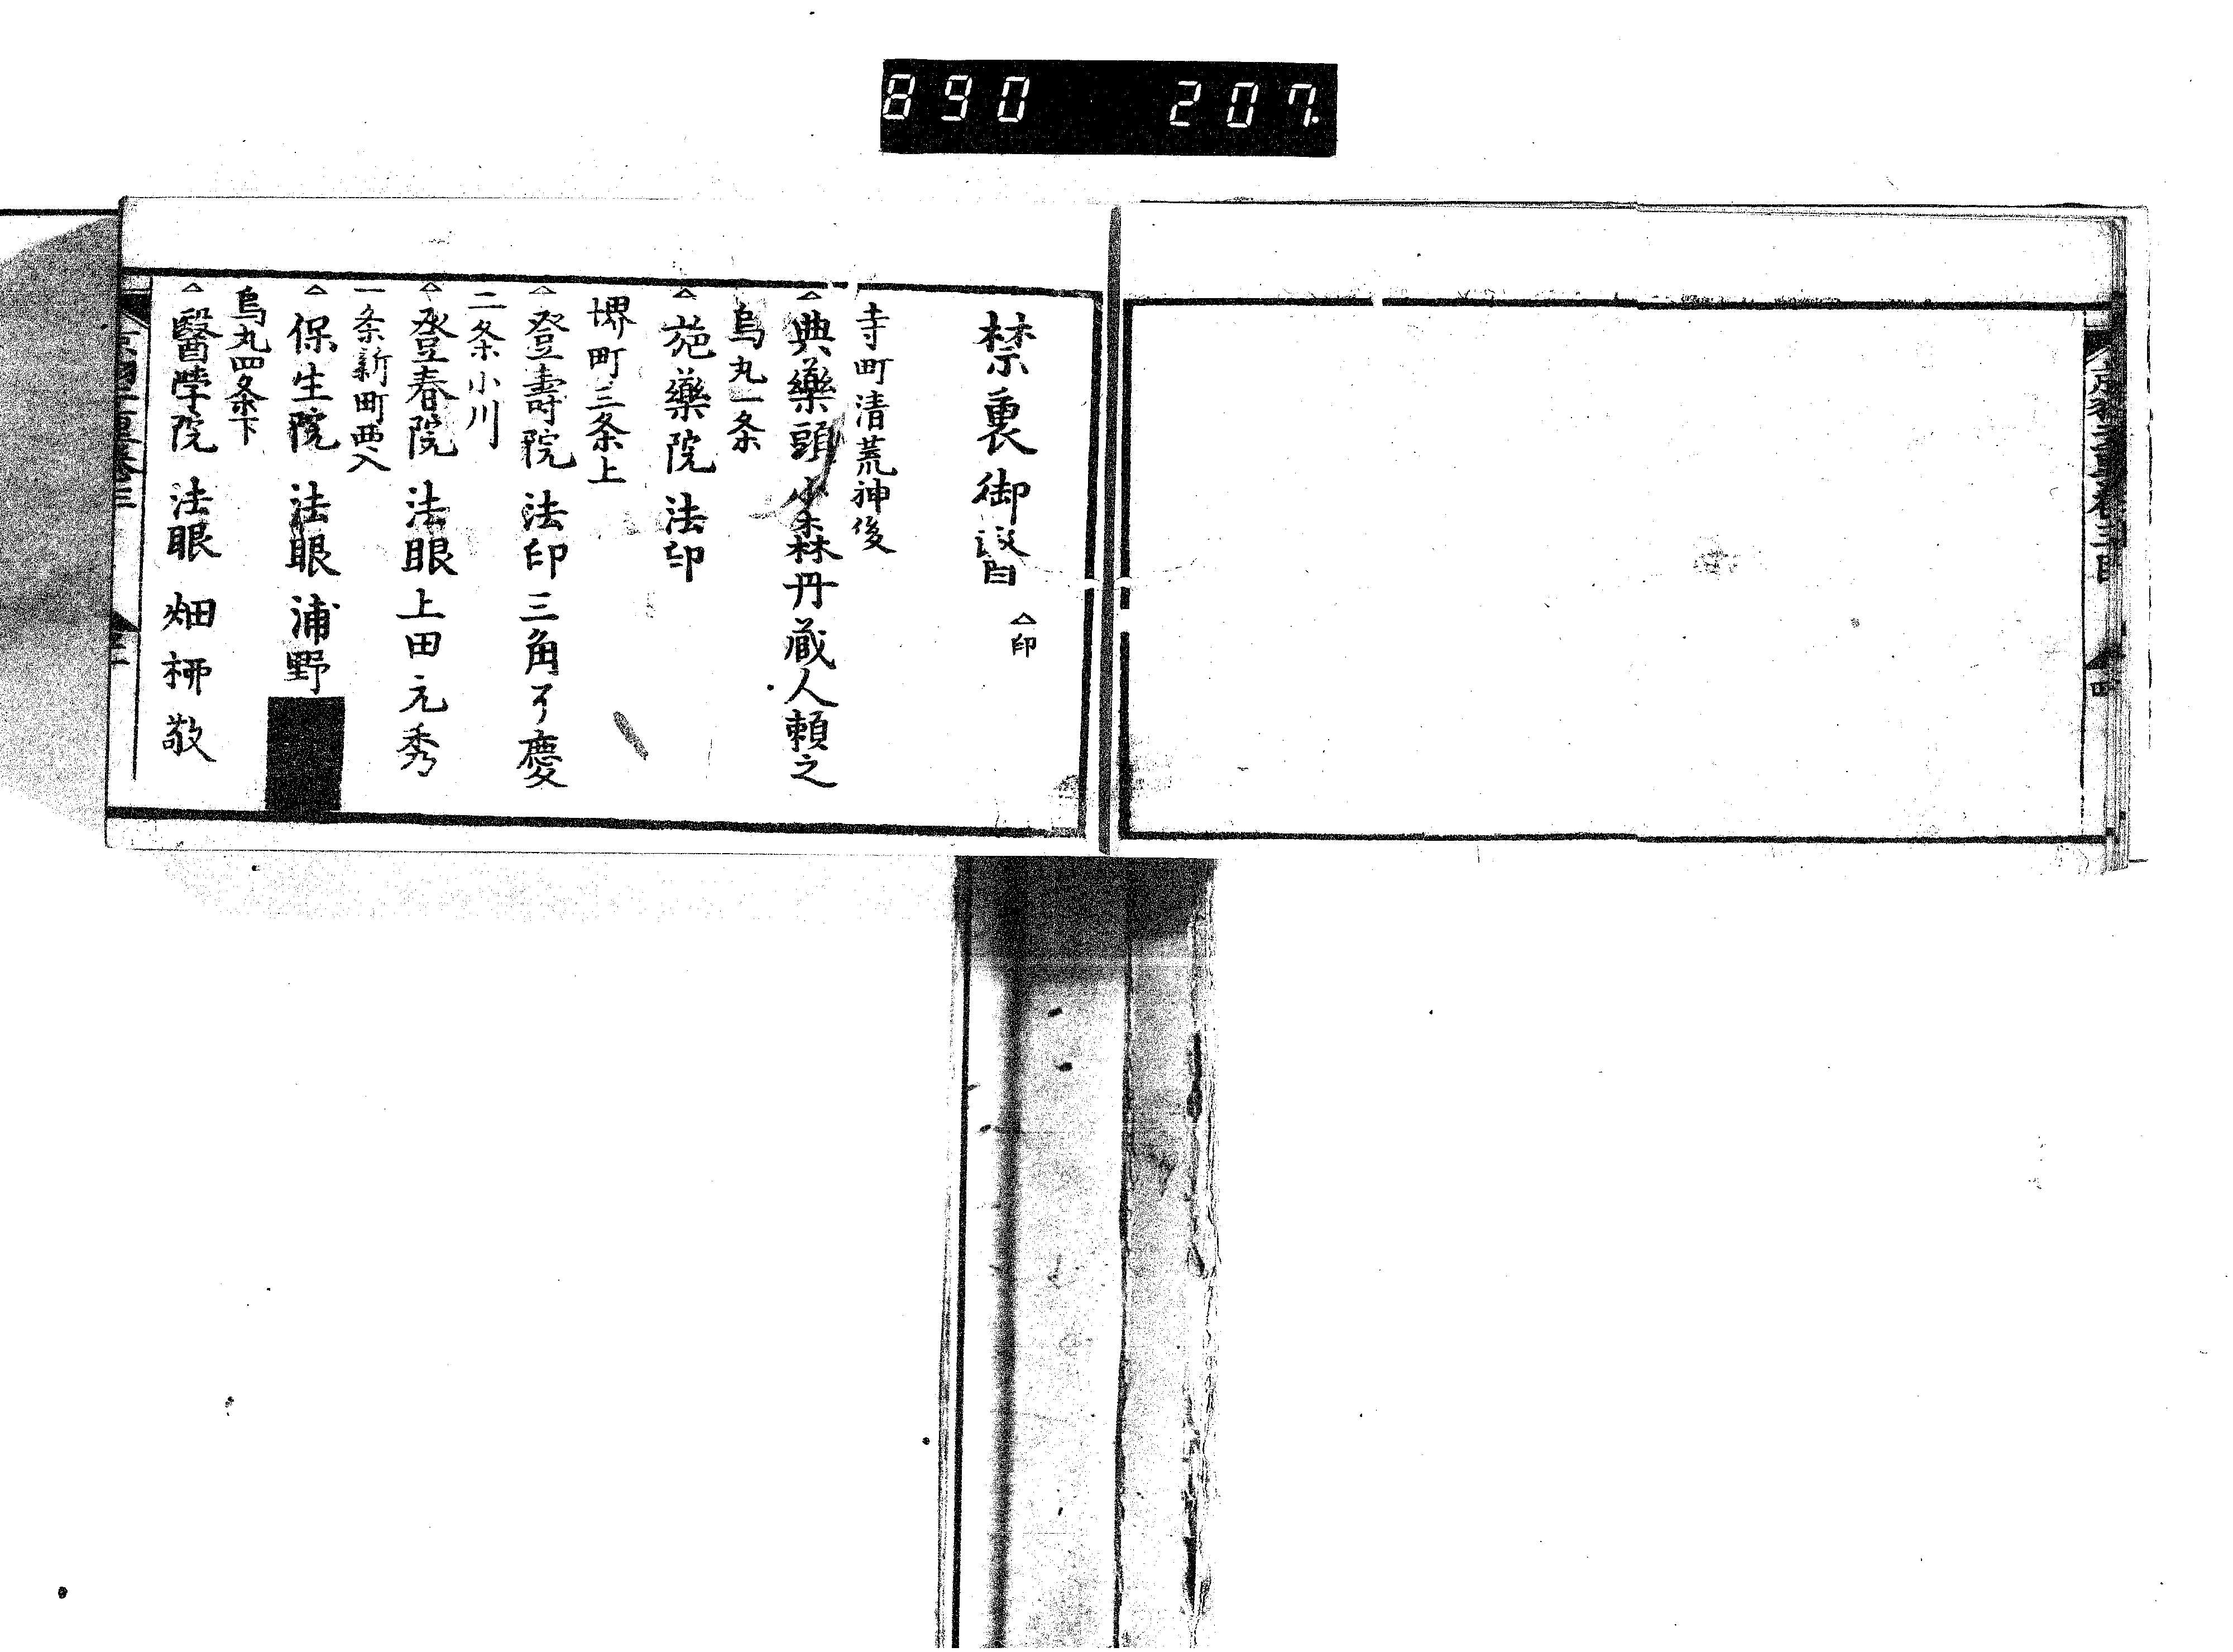 890 207.
禁裏御醫 △印
寺町清荒神後
△典藥頭 小森丹蔵人頼之
烏丸一条
△施藥院 法印
堺町三条上
△登壽院 法印 三角了慶
二条小川
△登春院 法眼 上田元秀
一条新町西入
△保生院 法眼 浦野
烏丸四条下
△醫学院 法眼 畑 柳敬